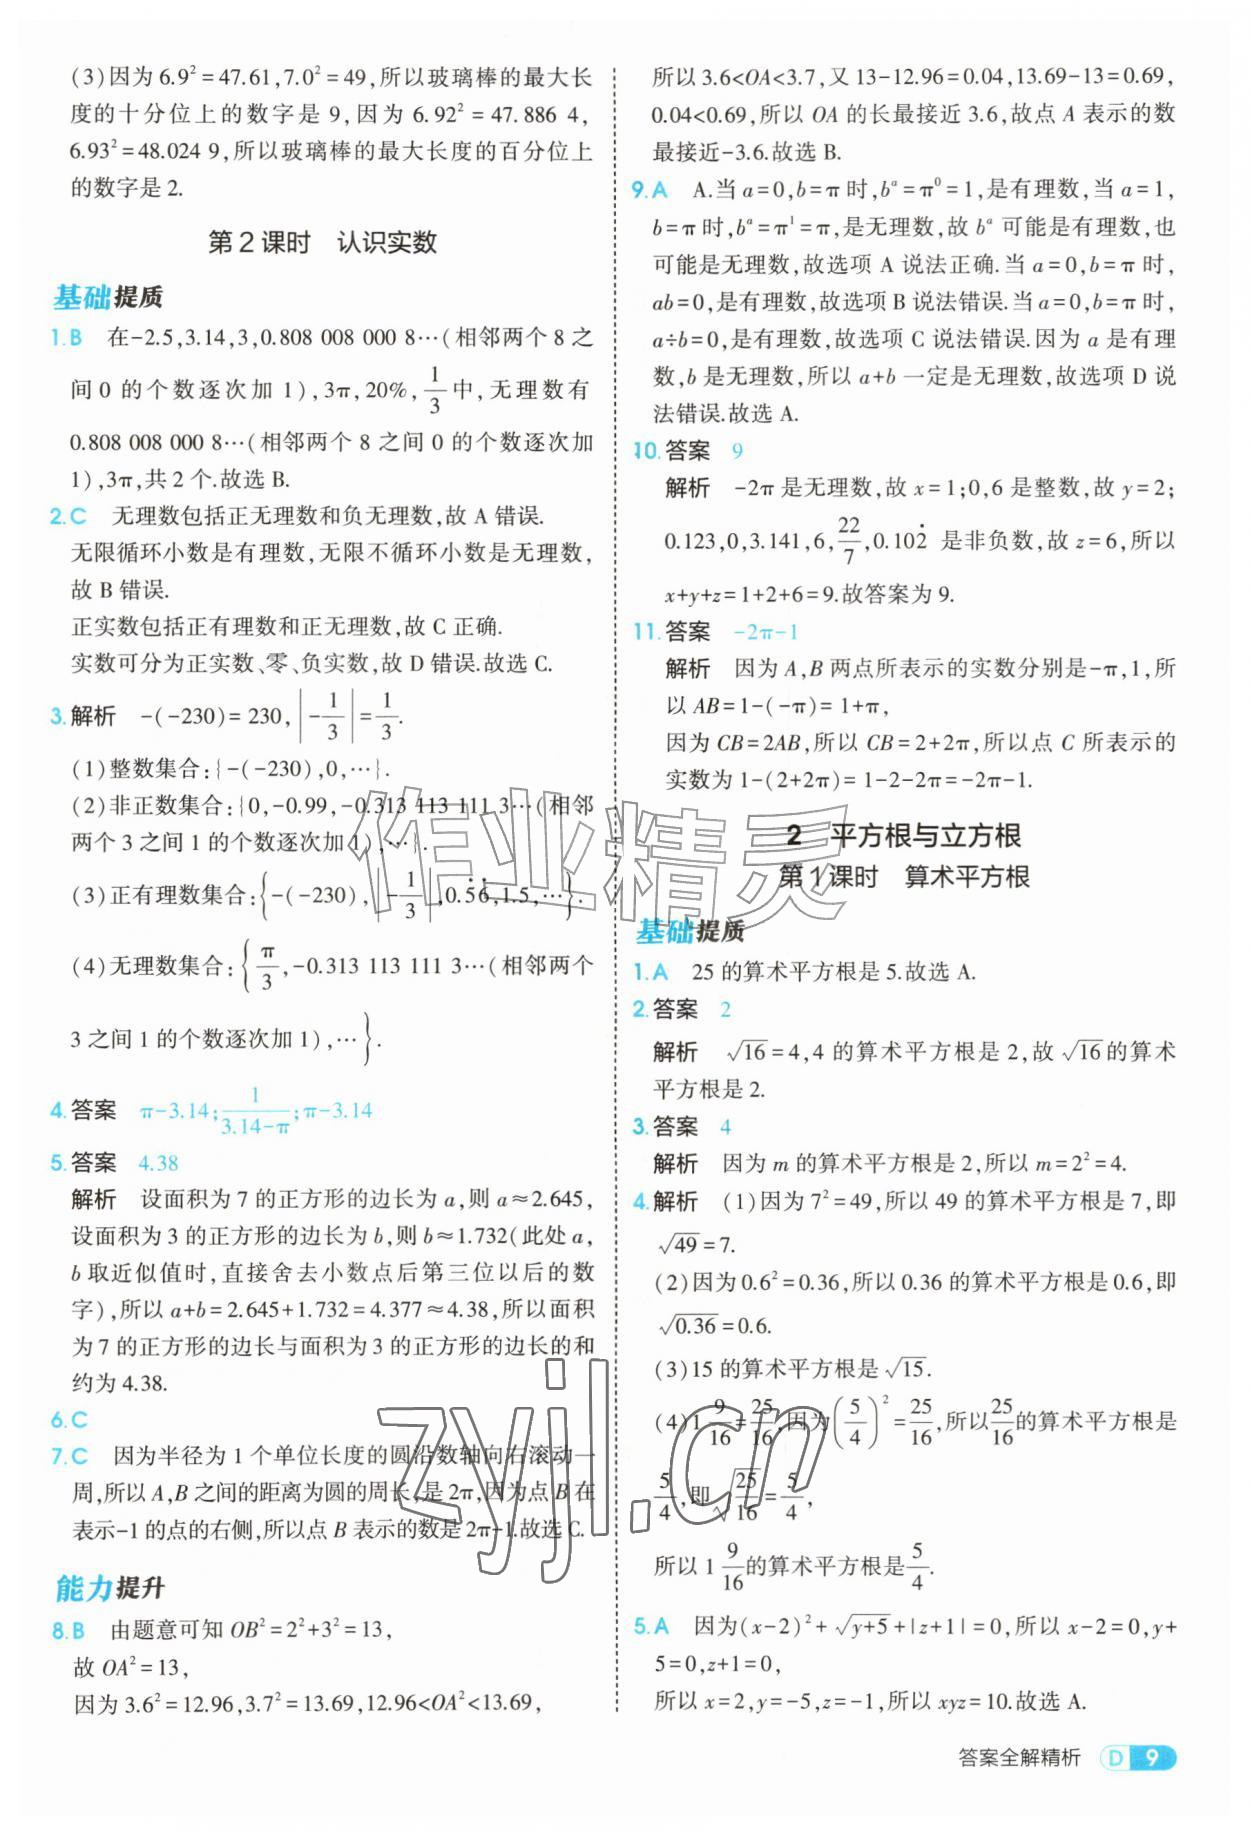 (3)因为 6.9²=47.61,7.0²=49,所以玻璃棒的最大长
度的十分位上的数字是 9,因为 6.92²=47.886 4,
6.93²=48.024 9,所以玻璃棒的最大长度的百分位上
的数字是 2.
第 2 课时 认识实数
基础提质
1.B 在-2.5,3.14,3,0.808 008 000 8…(相邻两个 8 之
间 0 的个数逐次加 1),3π,20%,1/3中,无理数有
0.808 008 000 8…(相邻两个 8 之间 0 的个数逐次加
1),3π,共 2 个.故选 B.
2.C 无理数包括正无理数和负无理数,故 A 错误.
无限循环小数是有理数,无限不循环小数是无理数,
故 B 错误.
正实数包括正有理数和正无理数,故 C 正确.
实数可分为正实数、零、负实数,故 D 错误.故选 C.
3.解析 -(-230)=230,|-1/3|=1/3.
(1)整数集合:{-(-230),0,…}.
(2)非正数集合:{0,-0.99,-0.313 113 111 3…(相邻
两个 3 之间 1 的个数逐次加 1),…}.
(3)正有理数集合:{-(-230),|-1/3|,0.5̇6̇,1.5,…}.
(4)无理数集合:{π/3,-0.313 113 111 3…(相邻两个
3 之间 1 的个数逐次加 1),…}.
4.答案 π-3.14;1/(3.14-π);π-3.14
5.答案 4.38
解析 设面积为 7 的正方形的边长为 a,则 a≈2.645,
设面积为 3 的正方形的边长为 b,则 b≈1.732(此处 a,
b 取近似值时,直接舍去小数点后第三位以后的数
字),所以 a+b=2.645+1.732=4.377≈4.38,所以面积
为 7 的正方形的边长与面积为 3 的正方形的边长的和
约为 4.38.
6.C
7.C 因为半径为 1 个单位长度的圆沿数轴向右滚动一
周,所以 A,B 之间的距离为圆的周长,是 2π,因为点 B 在
表示-1 的点的右侧,所以点 B 表示的数是 2π-1.故选 C.
能力提升
8.B 由题意可知 OB²=2²+3²=13,
故 OA²=13,
因为 3.6²=12.96,3.7²=13.69,12.96<OA²<13.69,
所以 3.6<OA<3.7,又 13-12.96=0.04,13.69-13=0.69,
0.04<0.69,所以 OA 的长最接近 3.6,故点 A 表示的数
最接近-3.6.故选 B.
9.A A.当 a=0,b=π 时,bᵃ=π⁰=1,是有理数,当 a=1,
b=π 时,bᵃ=π¹=π,是无理数,故 bᵃ 可能是有理数,也
可能是无理数,故选项 A 说法正确.当 a=0,b=π 时,
ab=0,是有理数,故选项 B 说法错误.当 a=0,b=π 时,
a÷b=0,是有理数,故选项 C 说法错误.因为 a 是有理
数,b 是无理数,所以 a+b 一定是无理数,故选项 D 说
法错误.故选 A.
10.答案 9
解析 -2π 是无理数,故 x=1;0,6 是整数,故 y=2;
0.123,0,3.141,6,22/7,0.102̇ 是非负数,故 z=6,所以
x+y+z=1+2+6=9.故答案为 9.
11.答案 -2π-1
解析 因为 A,B 两点所表示的实数分别是-π,1,所
以 AB=1-(-π)=1+π,
因为 CB=2AB,所以 CB=2+2π,所以点 C 所表示的
实数为 1-(2+2π)=1-2-2π=-2π-1.
2 平方根与立方根
第 1 课时 算术平方根
基础提质
1.A 25 的算术平方根是 5.故选 A.
2.答案 2
解析 √16=4,4 的算术平方根是 2,故 √16的算术
平方根是 2.
3.答案 4
解析 因为 m 的算术平方根是 2,所以 m=2²=4.
4.解析 (1)因为 7²=49,所以 49 的算术平方根是 7,即
√49=7.
(2)因为 0.6²=0.36,所以 0.36 的算术平方根是 0.6,即
√0.36=0.6.
(3)15 的算术平方根是 √15.
(4)1 9/16=25/16,因为(5/4)²=25/16,所以25/16的算术平方根是
5/4,即√(25/16)=5/4,
所以 1 9/16的算术平方根是5/4.
5.A 因为(x-2)²+√(y+5)+|z+1|=0,所以 x-2=0,y+
5=0,z+1=0,
所以 x=2,y=-5,z=-1,所以 xyz=10.故选 A.
作业精灵
zyjl.cn
答案全解精析 D 9